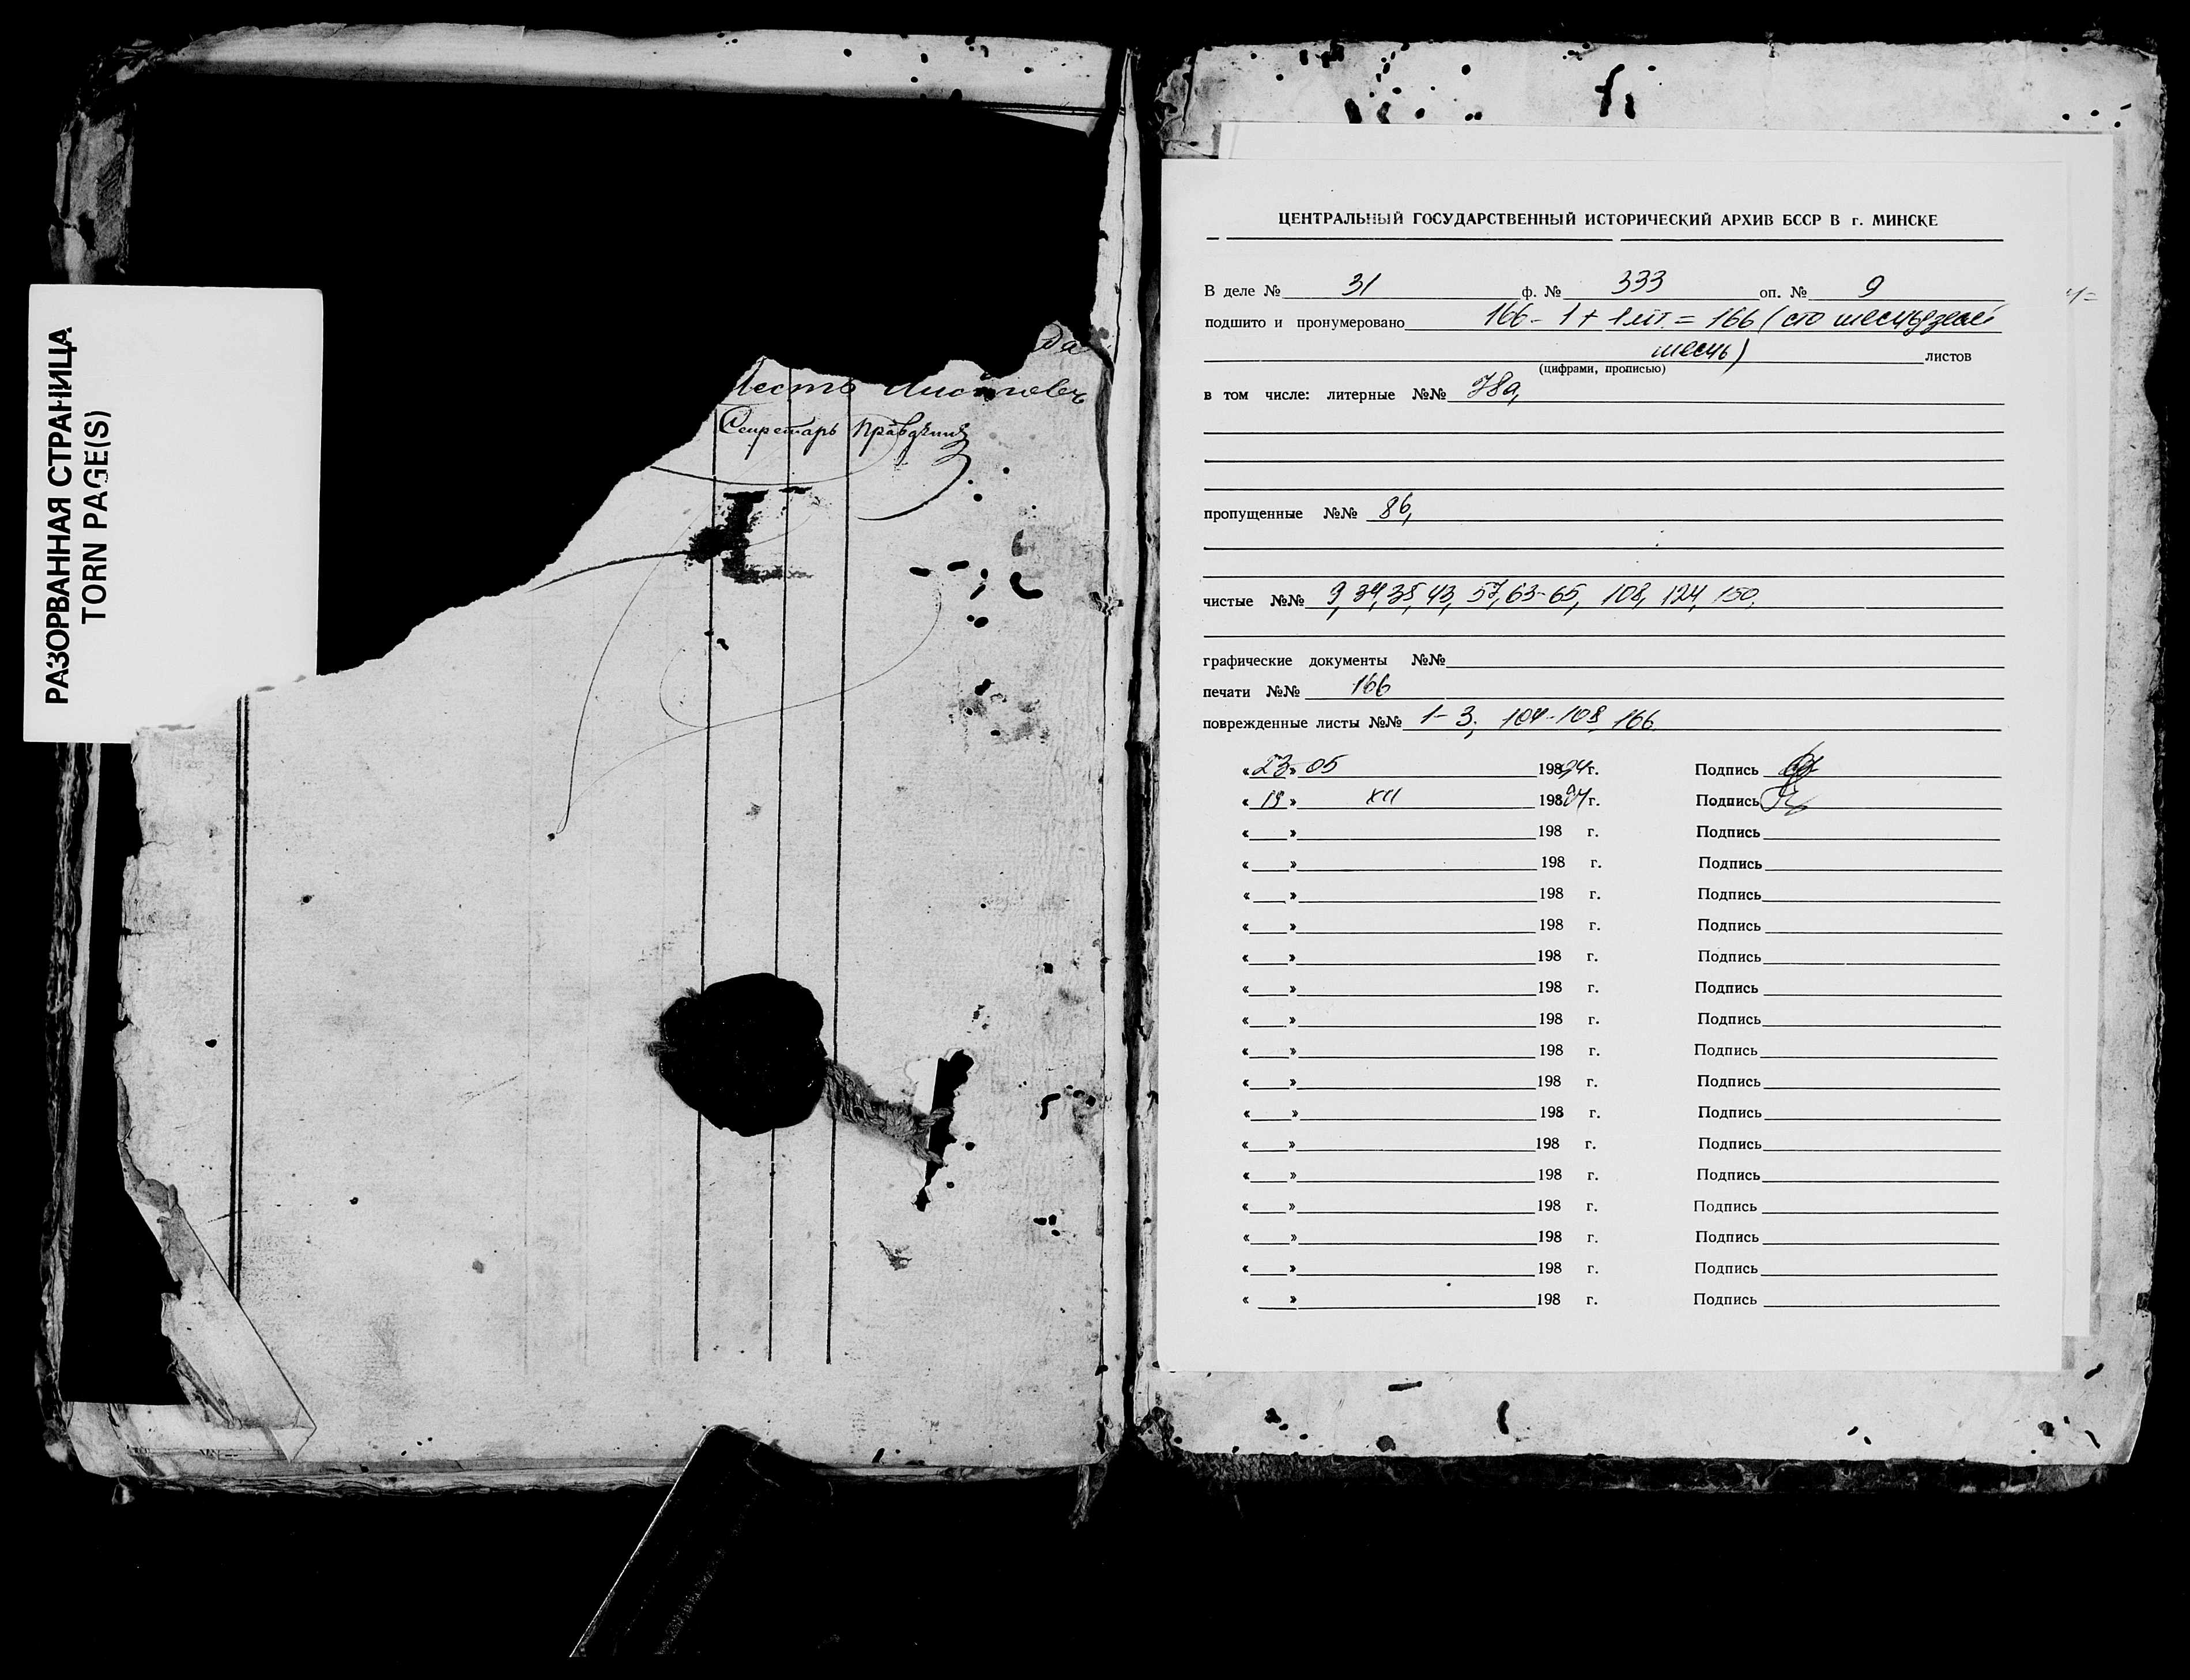 РАЗОРВАННАЯ СТРАНИЦА
TORN PAGE(S)
да
шесть листовъ
Секретарь
ЦЕНТРАЛЬНЫЙ ГОСУДАРСТВЕННЫЙ ИСТОРИЧЕСКИЙ АРХИВ БССР В г. МИНСКЕ
В деле № 31 ф. № 333 оп. № 9
подшито и пронумеровано 166 - 1 + 1 лит. = 166 (сто шесцьдзесят
шесць) листов
(цифрами, прописью)
в том числе: литерные №№ 78а,
пропущенные №№ 86,
чистые №№ 9, 34, 35, 43, 57, 63-65, 108, 124, 150.
графические документы №№
печати №№ 166
поврежденные листы №№ 1-3; 104-108, 166.
« 23 » 05 198 94 г. Подпись
« 19 » XII 198 г. Подпись
« » 198 г. Подпись
« » 198 г. Подпись
« » 198 г. Подпись
« » 198 г. Подпись
« » 198 г. Подпись
« » 198 г. Подпись
« » 198 г. Подпись
« » 198 г. Подпись
« » 198 г. Подпись
« » 198 г. Подпись
« » 198 г. Подпись
« » 198 г. Подпись
« » 198 г. Подпись
« » 198 г. Подпись
« » 198 г. Подпись
« » 198 г. Подпись